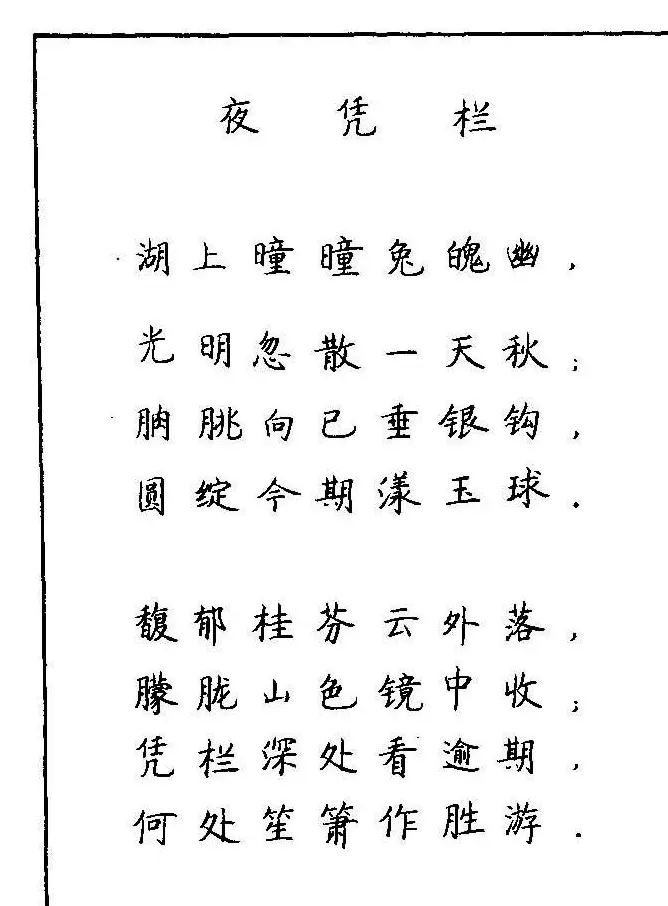 夜凭栏
湖上曈曈兔魄幽，
光明忽散一天秋；
朒朓向已垂银钩，
圆绽今期漾玉球．
馥郁桂芬云外落，
朦胧山色镜中收；
凭栏深处看逾期，
何处笙箫作胜游．